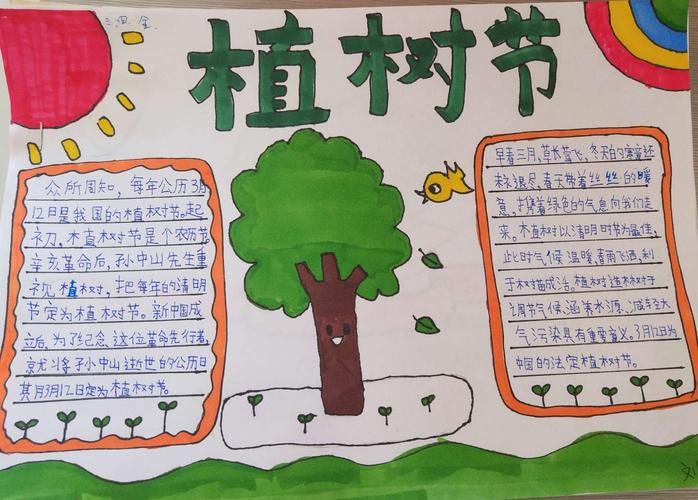 植树节
众所周知，每年公历3月
12日是我国的植树节。起
初，植树节是个农历节。
辛亥革命后，孙中山先生重
视植树，把每年的清明
节定为植树节。新中国成
立后，为了纪念这位革命先行者，
就将孙中山逝世的公历日
其月3月12日定为植树节。
早春三月，草长莺飞，冬天的寒意还
未退尽，春天带着丝丝的暖
意，携着绿色的气息向我们走
来。植树以清明时节为最佳，
此时气候温暖，春雨飞洒，利
于树苗成活。植树造林对于
调节气候、涵养水源、减轻大
气污染具有重要意义。3月12日为
中国的法定植树节。
刘